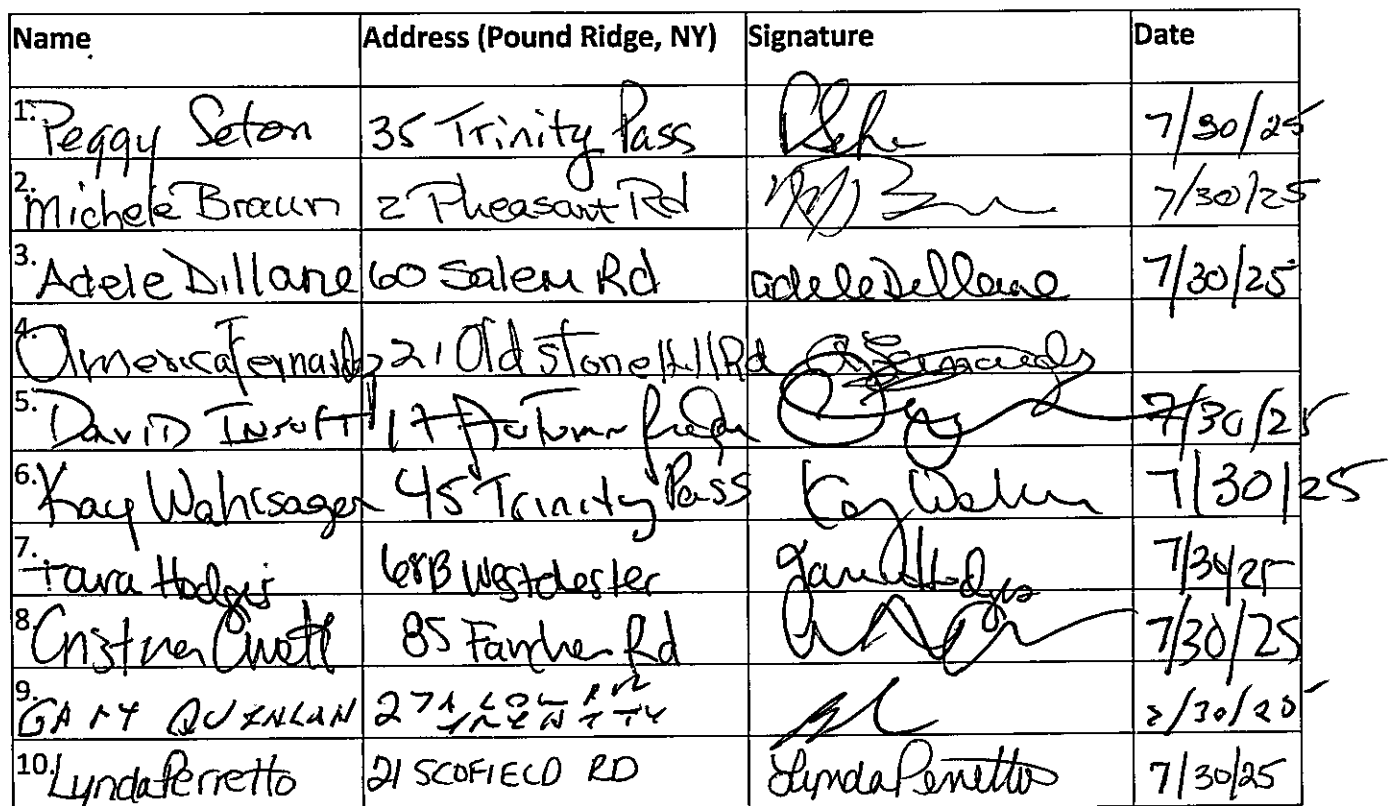 Name Address (Pound Ridge, NY) Signature Date
1. Peggy Seton 35 Trinity Pass 7/30/25
2. Michele Braun 2 Pheasant Rd 7/30/25
3. Adele Dillane 60 Salem Rd Adele Dillane 7/30/25
4. America Fernandez 21 Old Stone Hill Rd
5. David 17 Autumn Ridge 7/30/25
6. Kay 45 Trinity Pass Kay 7/30/25
7. Tara Hodgis 68B Westchester Hodgis 7/30/25
8. 85 Fancher Rd 7/30/25
9. GARY QUINLAN 27
10. Lynda Perretto 21 SCOFIELD RD Lynda Perretto 7/30/25